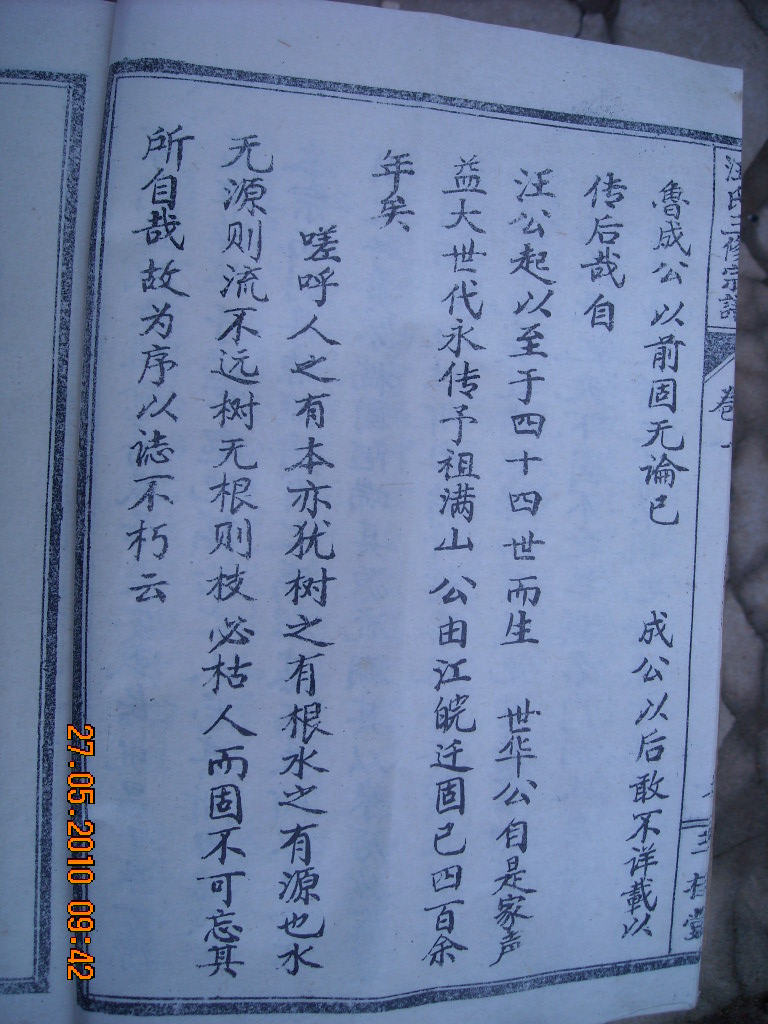 汪氏三修宗譜
卷一
三桂堂
魯成公以前固无論已　成公以后敢不详載以
传后哉自
汪公起以至于四十四世而生　世华公自是家声
益大世代永传予祖满山　公由江皖迁固已四百余
年矣
嗟呼人之有本亦犹树之有根水之有源也水
无源则流不远树无根则枝必枯人而固不可忘其
所自哉故为序以誌不朽云
27.05.2010 09:42